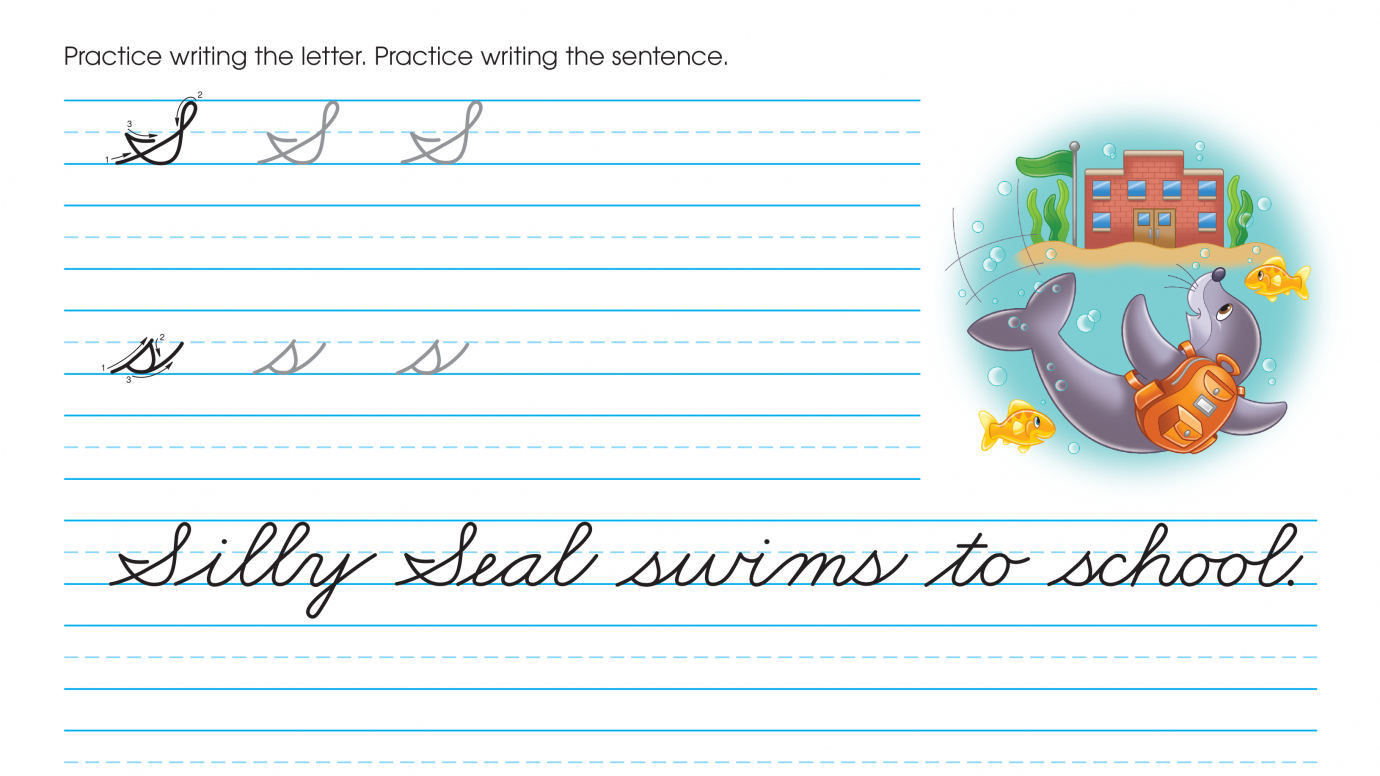 Practice writing the letter. Practice writing the sentence.
1 2 3 S S S
1 2 3 s s s
Silly Seal swims to school.